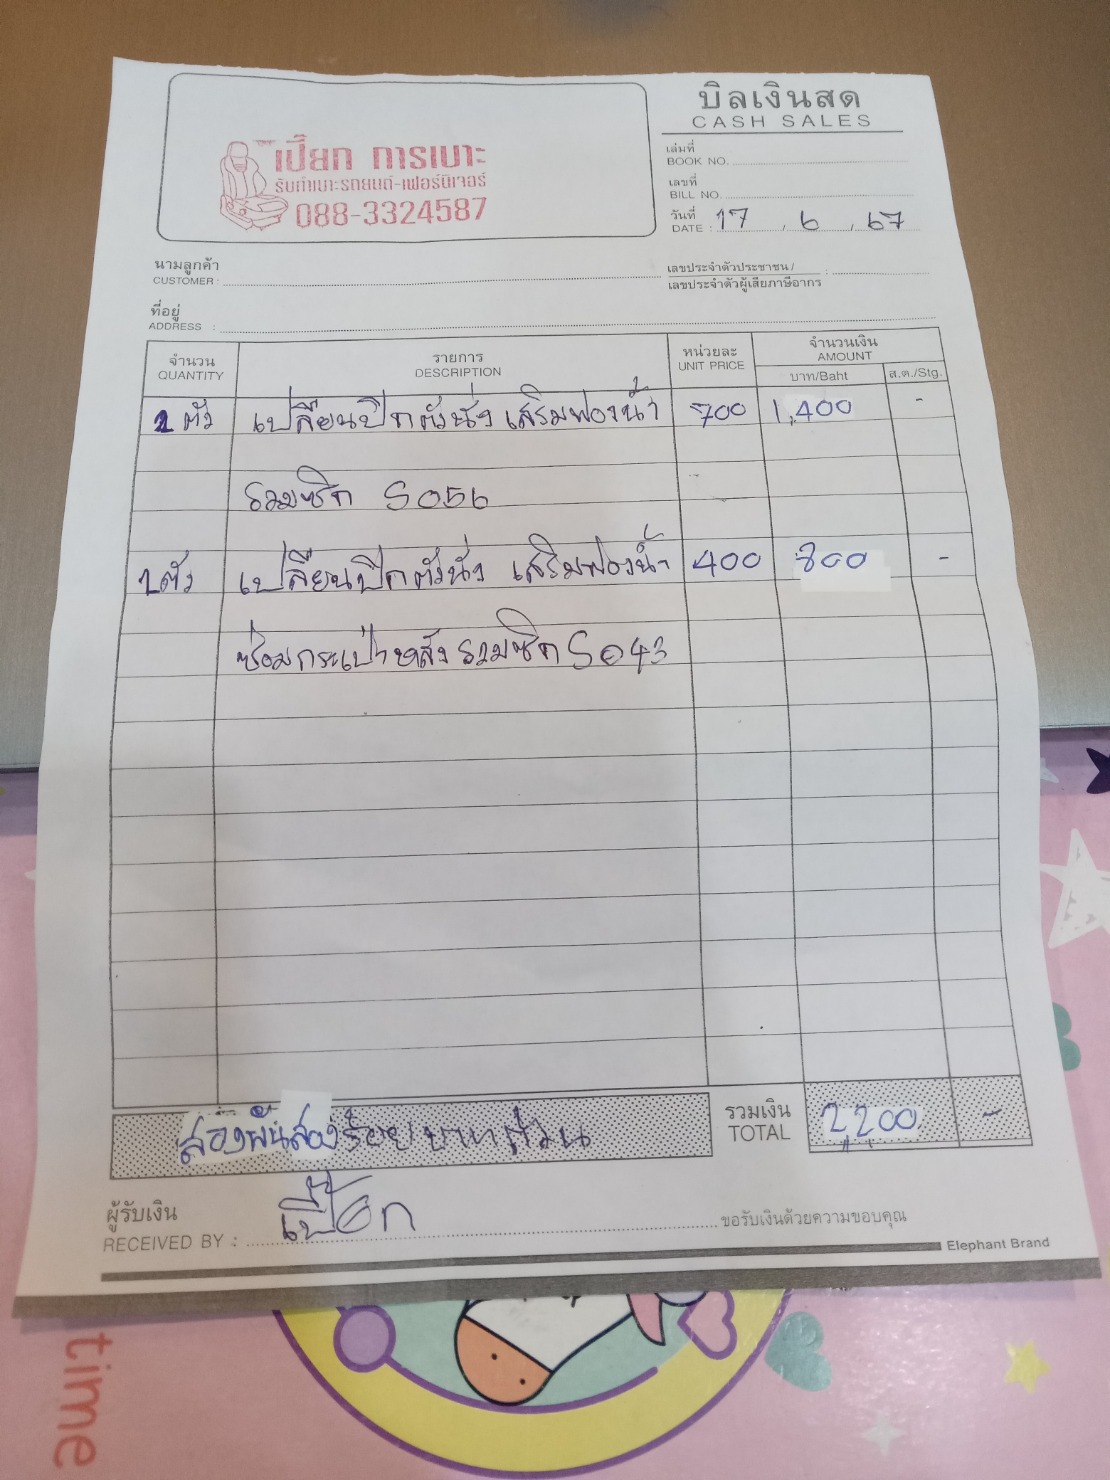 บิลเงินสด
CASH SALES
เปี๊ยก การเบาะ
รับทำเบาะรถยนต์-เฟอร์นิเจอร์
088-3324587
เล่มที่
BOOK NO.
เลขที่
BILL NO.
วันที่
DATE : 17 , 6 , 67
นามลูกค้า
CUSTOMER :
เลขประจำตัวประชาชน/
เลขประจำตัวผู้เสียภาษีอากร :
ที่อยู่
ADDRESS :
จำนวน
QUANTITY
รายการ
DESCRIPTION
หน่วยละ
UNIT PRICE
จำนวนเงิน
AMOUNT
บาท/Baht ส.ต./Stg.
2 ตัว เปลี่ยนปีกตัวนั่ง เสริมฟองน้ำ 700 1,400 -
รวมซิก S056
2 ตัว เปลี่ยนปีกตัวนั่ง เสริมฟองน้ำ 400 800 -
ซ่อมกระเป๋าหลัง รวมซิก S043
สองพันสองร้อยบาทถ้วน
รวมเงิน
TOTAL
2,200 -
ผู้รับเงิน
RECEIVED BY : เปี๊ยก ขอรับเงินด้วยความขอบคุณ
Elephant Brand
time